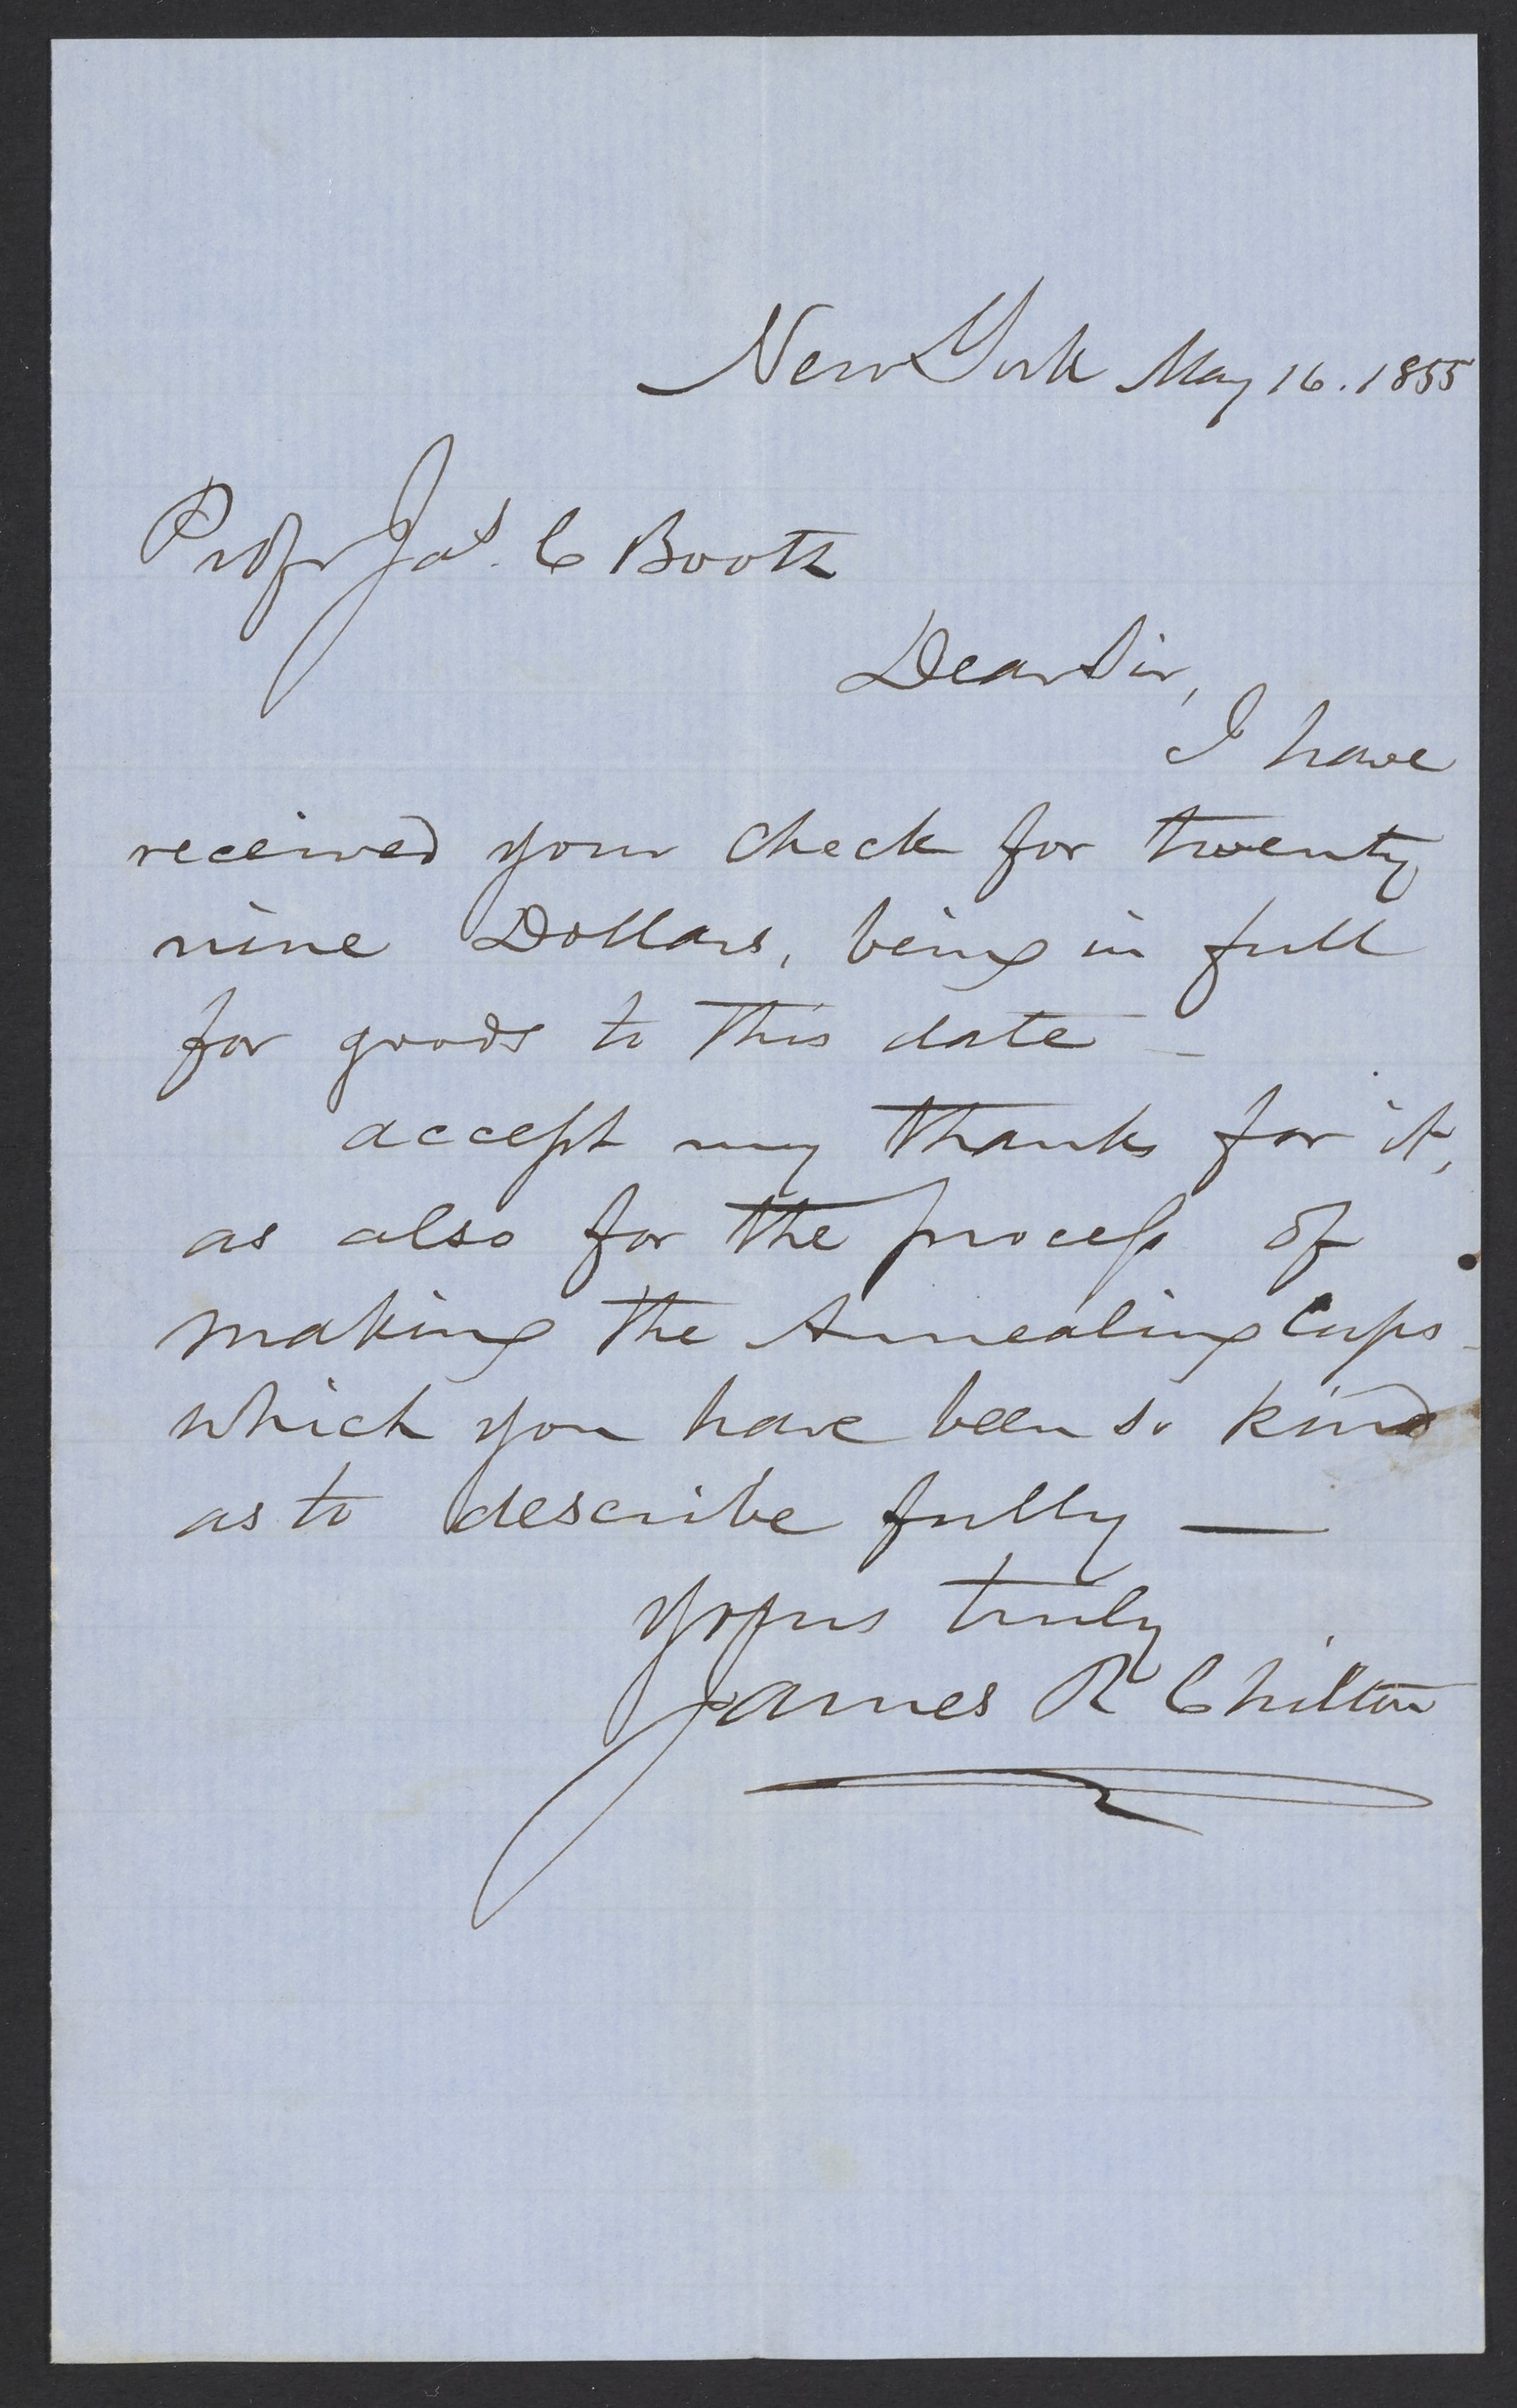 New York May 16. 1855
Profr Jas. C Booth
Dear Sir,
I have
received your check for twenty
nine Dollars, being in full
for goods to this date —
accept my thanks for it,
as also for the process of
making the Annealing Cups
which you have been so kind
as to describe fully —
yours truly
James R Chilton